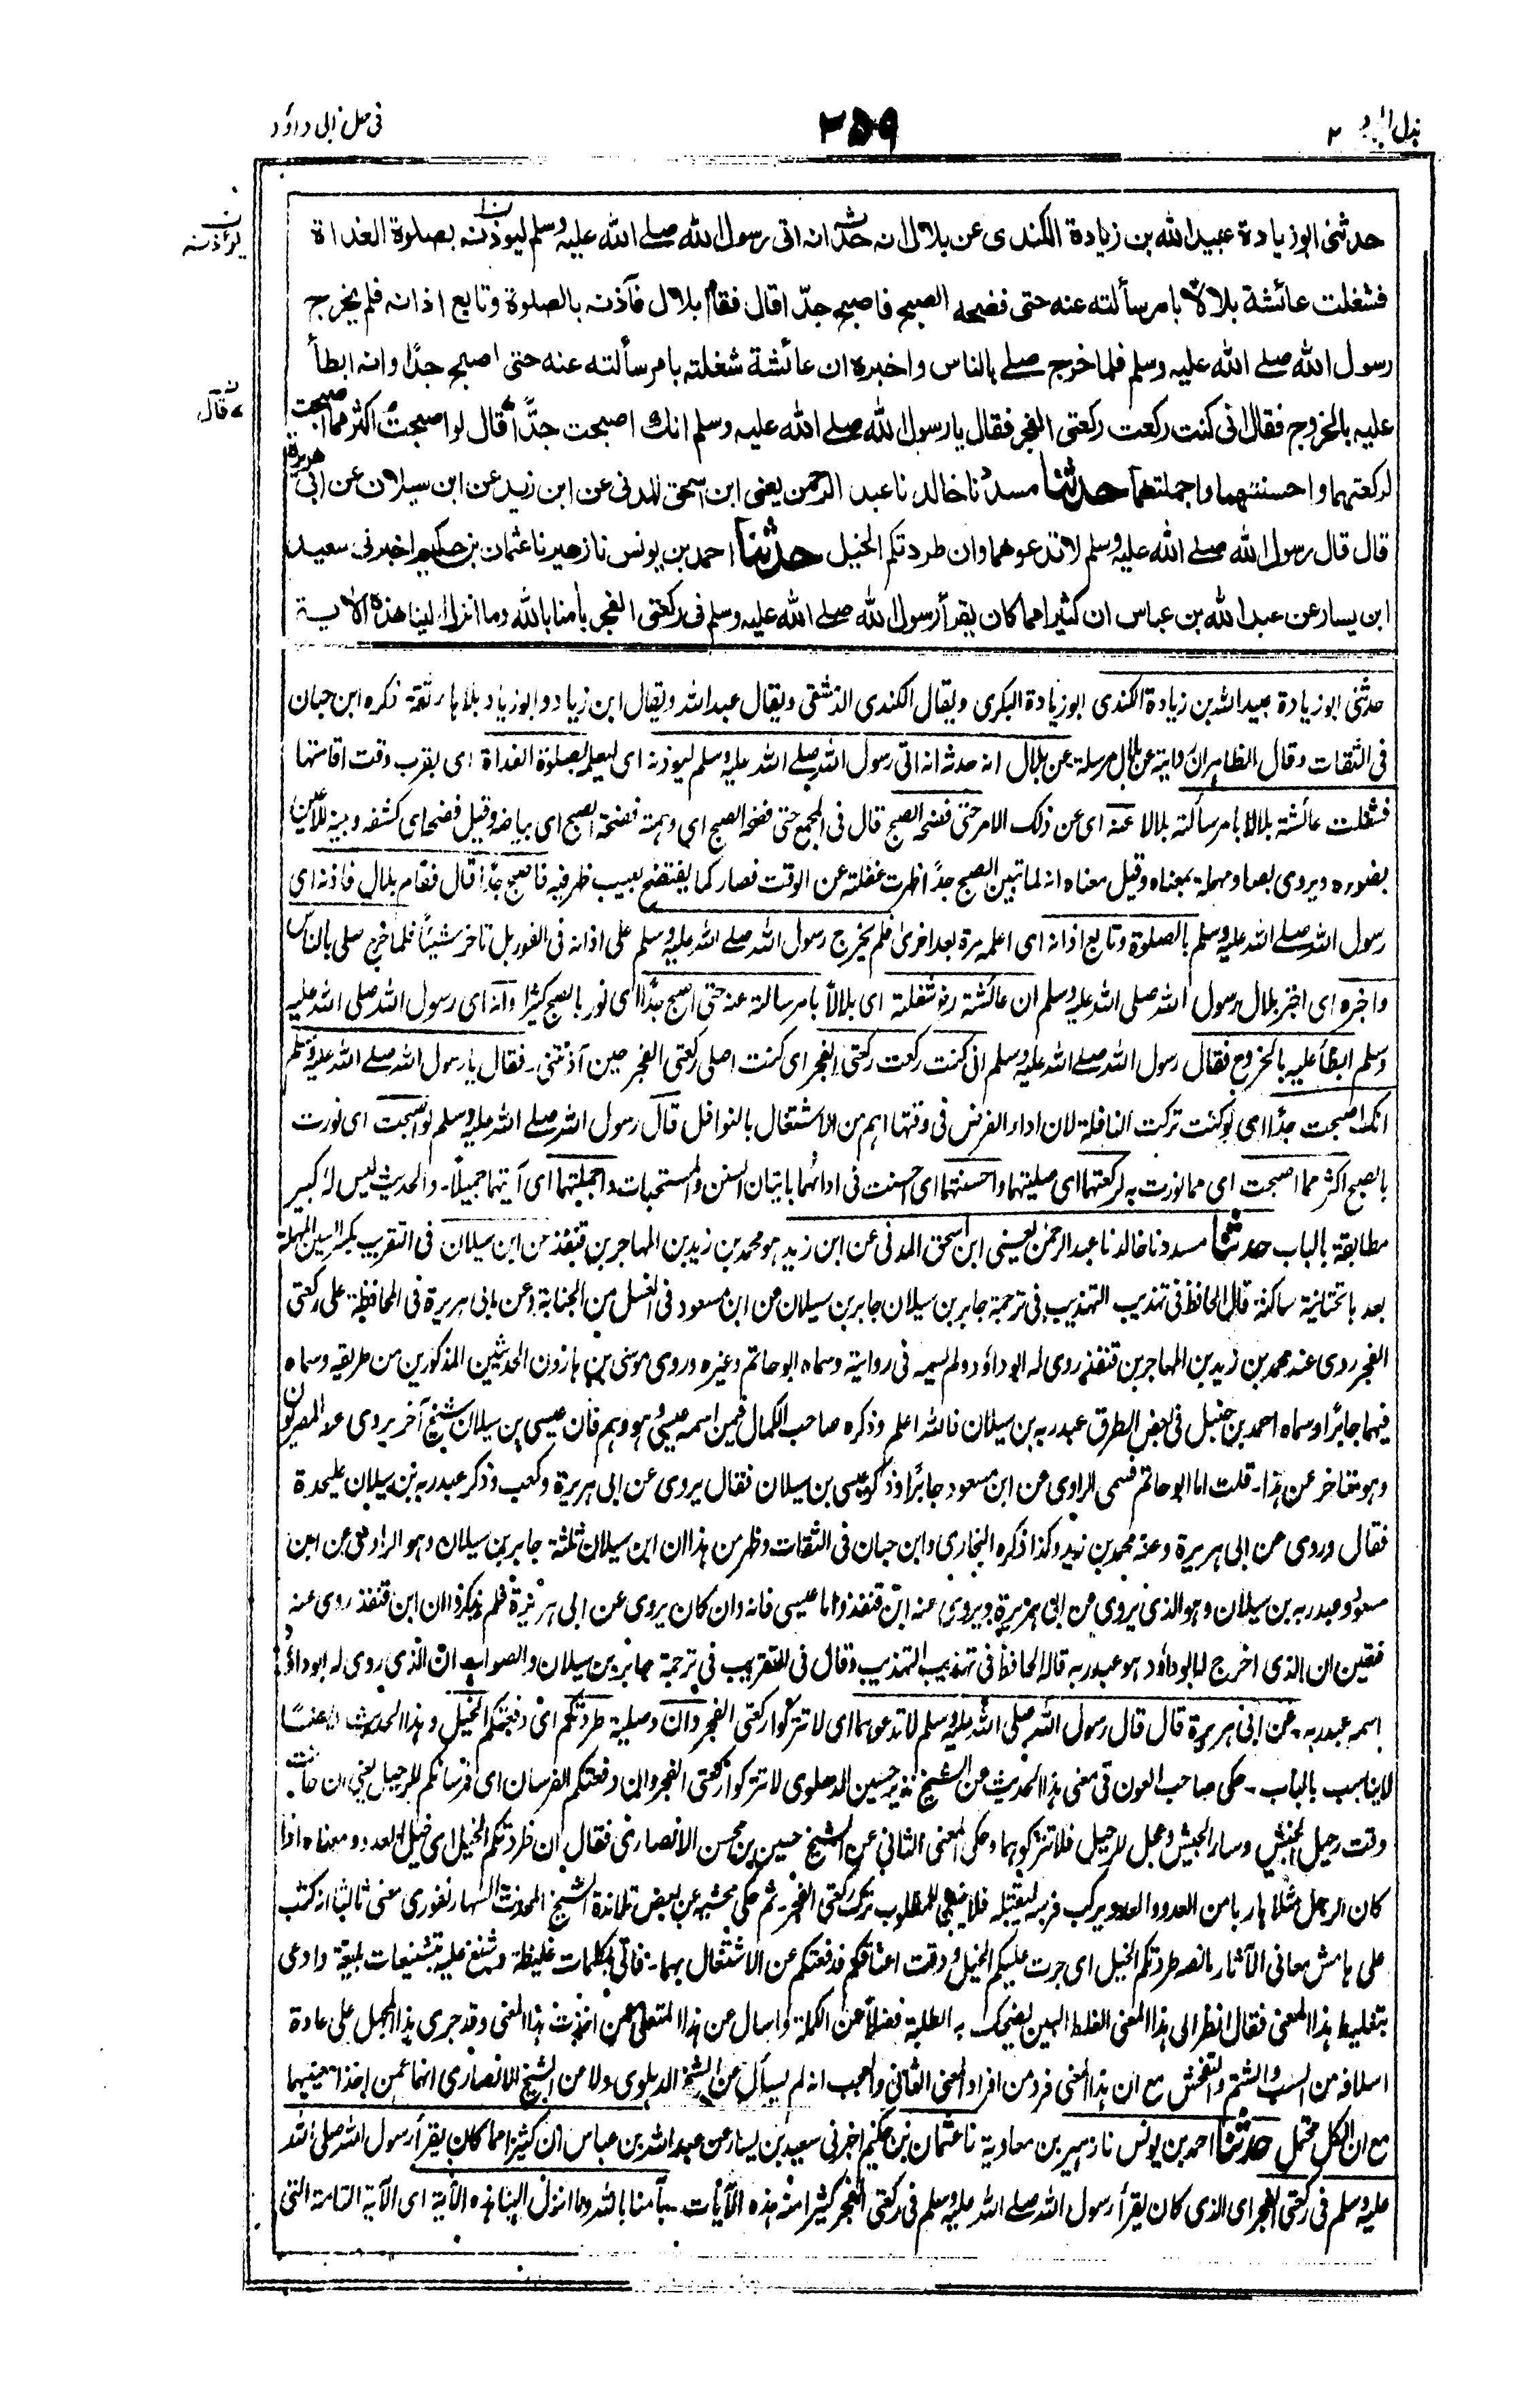 بذل المجهود ٢
٢٥٩
في حل ابي داؤد
حدثنى ابو زيادة عبيد الله بن زيادة الكندى عن بلال انه حدثه انه اتى رسول الله صلے الله عليه وسلم ليوذنه بصلوة الغداة
ليؤذنه
فشغلت عائشة بلالا بامر سألته عنه حتى فضحه الصبح فاصبح جدا قال فقام بلال فآذنه بالصلوة وتابع اذانه فلم يخرج
رسول الله صلے الله عليه وسلم فلما خرج صلے بالناس واخبره ان عائشة شغلته بامر سألته عنه حتى اصبح جدًا وانه ابطأ
عليه بالخروج فقال انى كنت ركعت ركعتى الفجر فقال يا رسول الله صلے الله عليه وسلم انك اصبحت جدًّا قال لو اصبحتُ اكثر مما اصبحت
قال
لركعتهما واحسنتهما واجملتهما حدثنا مسدد نا خالد نا عبد الرحمن يعنى ابن اسحق المدنى عن ابن زيد عن ابن سيلان عن ابى هريرة
قال قال رسول الله صلے الله عليه وسلم لا تدعوهما وان طردتكم الخيل حدثنا احمد بن يونس نا زهير نا عثمان بن حكيم اخبرنى سعيد
ابن يسار عن عبد الله بن عباس ان كثيرا مما كان يقرأ رسول الله صلے الله عليه وسلم فى ركعتى الفجر بآمنا بالله وما انزل الينا هذه الاية
حدثنى ابو زيادة عبيد الله بن زيادة الكندى ابو زيادة البكرى ويقال الكندى الدمشقى ويقال عبد الله ويقال ابن زياد وابو زياد بلا هاء ثقة ذكره ابن حبان
فى الثقات وقال الظاهر ان روايته عن بلال مرسلة عن بلال انه حدثه انه اتى رسول الله صلے الله عليه وسلم ليوذنه اى ليعلمه بصلوة الغداة اى بقرب وقت اقامتها
فشغلت عائشة بلالا بامر سألته بلالا عنه اى عن ذلك الامر حتى فضحه الصبح قال فى المجمع حتى فضحه الصبح اى دهمته فضحة الصبح اى بياضه وقيل فضحه اى كشفه وبينه للاعين
بضوءه ويروى بصاد مهملة بمعناه وقيل معناه انه لما تبين الصبح جدًا ظهرت غفلته عن الوقت فصار كما يفتضح بعيب ظهر فيه فاصبح جدًا قال فقام بلال فاذنه اى
رسول الله صلے الله عليه وسلم بالصلوة وتابع اذانه اى اعلمه مرة بعد اخرى فلم يخرج رسول الله صلے الله عليه وسلم على اذانه فى الفور بل تاخر شيئًا فلما خرج صلى بالناس
واخبره اى اخبر بلال رسول الله صلى الله عليه وسلم ان عائشة رض شغلته اى بلالًا بامر سالته عنه حتى اصبح جدًا اى نور بالصبح كثيرا وانه اى رسول الله صلى الله عليه
وسلم ابطأ عليه بالخروج فقال رسول الله صلے الله عليه وسلم انى كنت ركعت ركعتى الفجر اى كنت اصلى ركعتى الفجر حين آذنتنى۔ فقال يا رسول الله صلے الله عليه وسلم
انك اصبحت جدًا اى لو كنت تركت النافلة لان اداء الفرض فى وقتها اهم من الاشتغال بالنوافل قال رسول الله صلے الله عليه وسلم لو اصبحت اى نورت
بالصبح اكثر مما اصبحت اى مما نورت به لركعتهما اى صليتهما واحسنتهما اى احسنت فى ادائهما باتيان السنن والمستحبات واجملتهما اى آتيتهما جميلًا۔ والحديث ليس له كبير
مطابقة بالباب حدثنا مسدد نا خالد نا عبد الرحمن يعنى ابن اسحق المدنى عن ابن زيد هو محمد بن زيد بن المهاجر بن قنفذ عن ابن سيلان فى التقريب بكسر السين المهملة
بعدها تحتانية ساكنة قال الحافظ فى تهذيب التهذيب فى ترجمة جابر بن سيلان جابر بن سيلان عن ابن مسعود فى الغسل من الجنابة وعن ابى هريرة فى المحافظة على ركعتى
الفجر روى عنه محمد بن زيد بن المهاجر بن قنفذ روى له ابو داؤد ولم يسمه فى روايته وسماه ابو حاتم وغيره وروى موسى بن هارون الحديثين المذكورين من طريقه وسماه
فيهما جابرًا وسماه احمد بن حنبل فى بعض الطرق عبد ربه بن سيلان فالله اعلم وذكره صاحب الكمال فيمن اسمه عيسى وهو وهم فان عيسى بن سيلان شيخ آخر يروى عنه المصريون
وهو متاخر عن هذا۔ قلت اما ابو حاتم فسمى الراوى عن ابن مسعود جابرًا وذكر عيسى بن سيلان فقال يروى عن ابى هريرة وكعب وذكر عبد ربه بن سيلان عليحدة
فقال وروى عن ابى هريرة وعنه محمد بن زيد وكذا ذكره البخارى وابن حبان فى الثقات وظهر من هذا ان ابن سيلان ثلثة جابر بن سيلان وهو الراوى عن ابن
مسعود وعبد ربه بن سيلان وهو الذى يروى عن ابى هريرة ويروى عنه ابن قنفذ واما عيسى فانه وان كان يروى عن ابى هريرة فلم يذكروا ان ابن قنفذ روى عنه
فتعين ان الذى اخرج له ابو داؤد هو عبد ربه قاله الحافظ فى تهذيب التهذيب وقال فى التقريب فى ترجمة جابر بن سيلان والصواب ان الذى روى له ابو داؤد
اسمه عبد ربه۔ عن ابى هريرة قال قال رسول الله صلى الله عليه وسلم لا تدعوهما اى لا تتركوا ركعتى الفجر وان وصلية طردتكم اى دفعتكم الخيل وهذا الحديث ايضًا
لا يناسب بالباب۔ حكى صاحب العون فى معنى هذا الحديث عن الشيخ نذير حسين الدهلوى لا تتركوا ركعتى الفجر وان دفعتكم الفرسان اى فرسانكم للرحيل يعنى ان حانت
وقت رحيل الجيش وسار الجيش وعجل للرحيل فلا تتركوهما وحكى المعنى الثانى عن الشيخ حسين بن محسن الانصارى فقال ان طردتكم الخيل اى خيل العدو ومعناه اذا
كان الرجل مثلا هاربا من العدو والعدو يركب فرسه ليقتله فلا ينبغى للمطلوب ترك ركعتى الفجر۔ ثم حكى محشيه عن بعض تلامذة الشيخ المحدث السهارنفورى معنى ثالثا انه كتب
على هامش معانى الآثار ما نصه طردتكم الخيل اى جرت عليكم الخيل ودقت اعناقكم فدفعتكم عن الاشتغال بهما۔ فاتى بكلمات غليظة وشنع عليه بتشنيعات بليغة وادعى
بتغليط هذا المعنى فقال انظر الى هذا المعنى الغلط البين يضحك به الطلبة فضلًا عن الكملة واسال عن هذا المتعلى عمن اخذت هذا المعنى وقد جرى هذا المجمل على عادة
اسلافه من السب والشتم والتفحش مع ان هذا المعنى فرد من افراد المعنى الثانى والعجب انه لم يسأل عن الشيخ الدهلوى ولا من الشيخ الانصارى انهما عمن اخذا معنييهما
مع ان الكل محتمل حدثنا احمد بن يونس نا زهير بن معاوية نا عثمان بن حكيم اخبرنى سعيد بن يسار عن عبد الله بن عباس ان كثيرًا مما كان يقرأ رسول الله صلى الله
عليه وسلم فى ركعتى الفجر اى الذى كان يقرأ رسول الله صلے الله عليه وسلم فى ركعتى الفجر كثيرًا منه هذه الآيات۔ بآمنا بالله وما انزل الينا هذه الآية اى الآية التامة التى